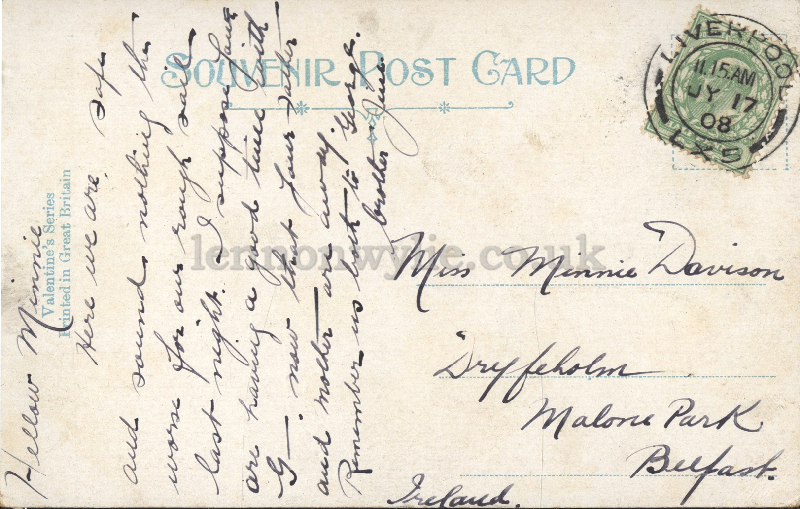 SOUVENIR POST CARD
LIVERPOOL
11.15 AM
JY 17
08
LXD
Valentine's Series
Printed in Great Britain
Hellow Minnie
Here we are, safe
and sound, nothing the
worse for our rough sail
last night. I suppose you
are having a good time with
G— now that your father
and mother are away.
Remember us but to George.
brother Jim
Miss Minnie Davison
Dryfeholm
Malone Park
Belfast.
Ireland.
lennonwylie.co.uk